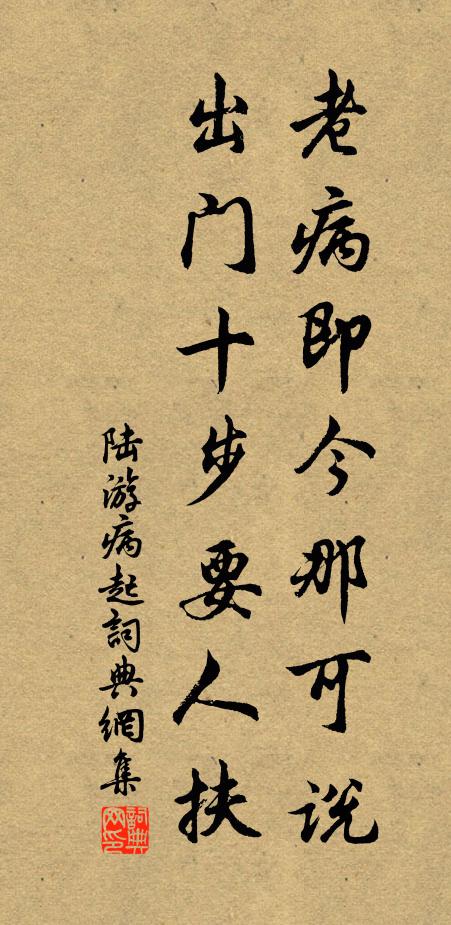 老病即今那可说
出门十步要人扶
陆游病起詞典網集
詞典网印